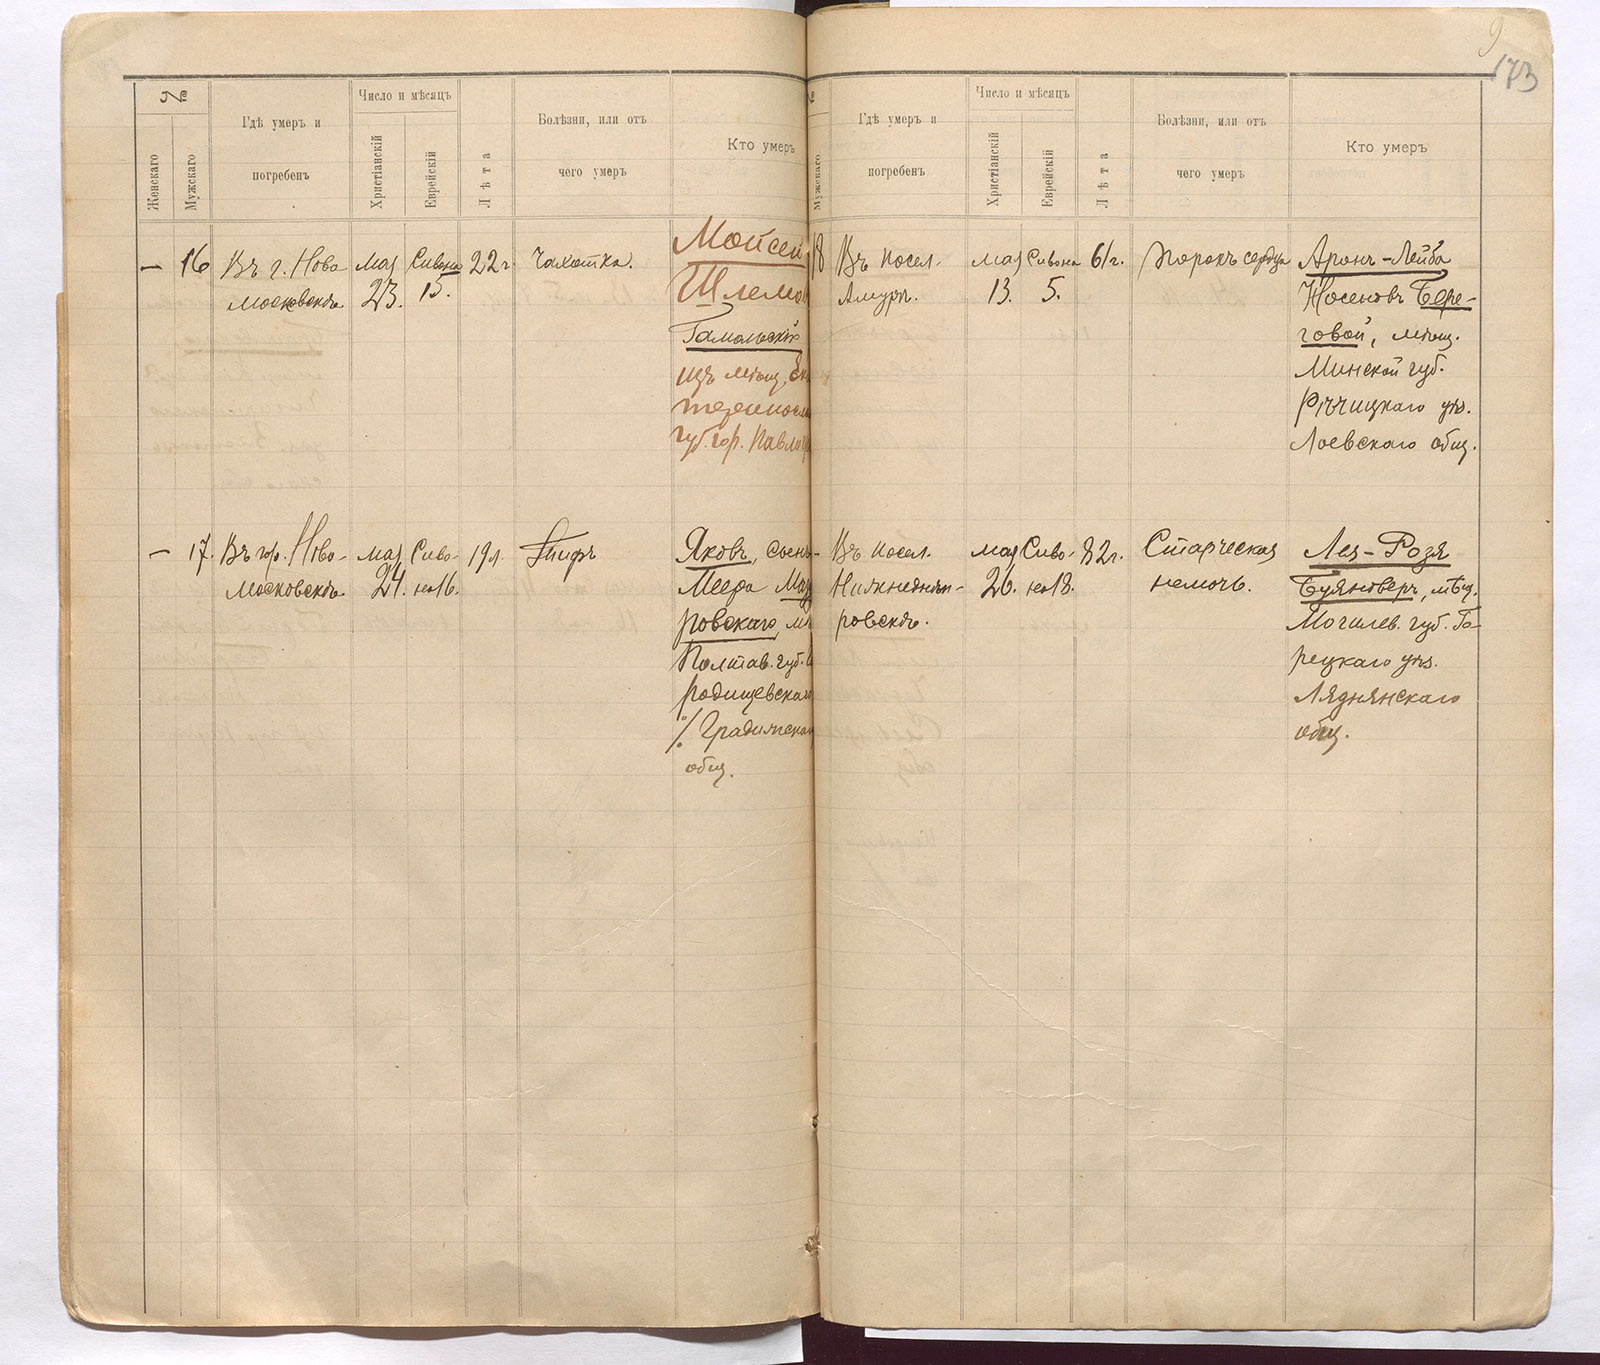 №
Женскаго
Мужскаго
Гдѣ умеръ и
погребенъ
Число и мѣсяцъ
Христіанскій
Еврейскій
Лѣта
Болѣзни, или отъ
чего умеръ
Кто умеръ
—
16
Въ г. Ново
московскѣ
мая
23.
Сивона
15.
22 г.
Чахотка.
Мойсей
Шлемов
Гамольскій
изъ мѣщ. Ека
териносл
губ. гор. Павлогр
—
17.
Въ гор. Ново-
московскѣ
мая
24.
Сиво-
на 16.
19 л.
Тифъ
Яковъ, сынъ
Меера
ровскаго,
Полтав. губ.
родищевскаго
%. Градижская
общ.
173
№
Мужскаго
Гдѣ умеръ и
погребенъ
Число и мѣсяцъ
Христіанскій
Еврейскій
Лѣта
Болѣзни, или отъ
чего умеръ
Кто умеръ
18
Въ посел.
Амуръ.
мая
13.
Сивона
5.
61 г.
Порокъ сердца
Аронъ-Лейба
Іосеновъ Бере-
говой, мѣщ.
Минской губ.
Рѣчицкаго уѣз.
Лоевскаго общ.
—
Въ посел.
Нижнеднѣп-
ровскъ.
мая
26.
Сиво-
на 18.
82 г.
Старческая
немочь.
Лея-Розя
Буяноверъ, мѣщ.
Могилев. губ. Го-
рецкаго уѣз.
Ляднянскаго
общ.